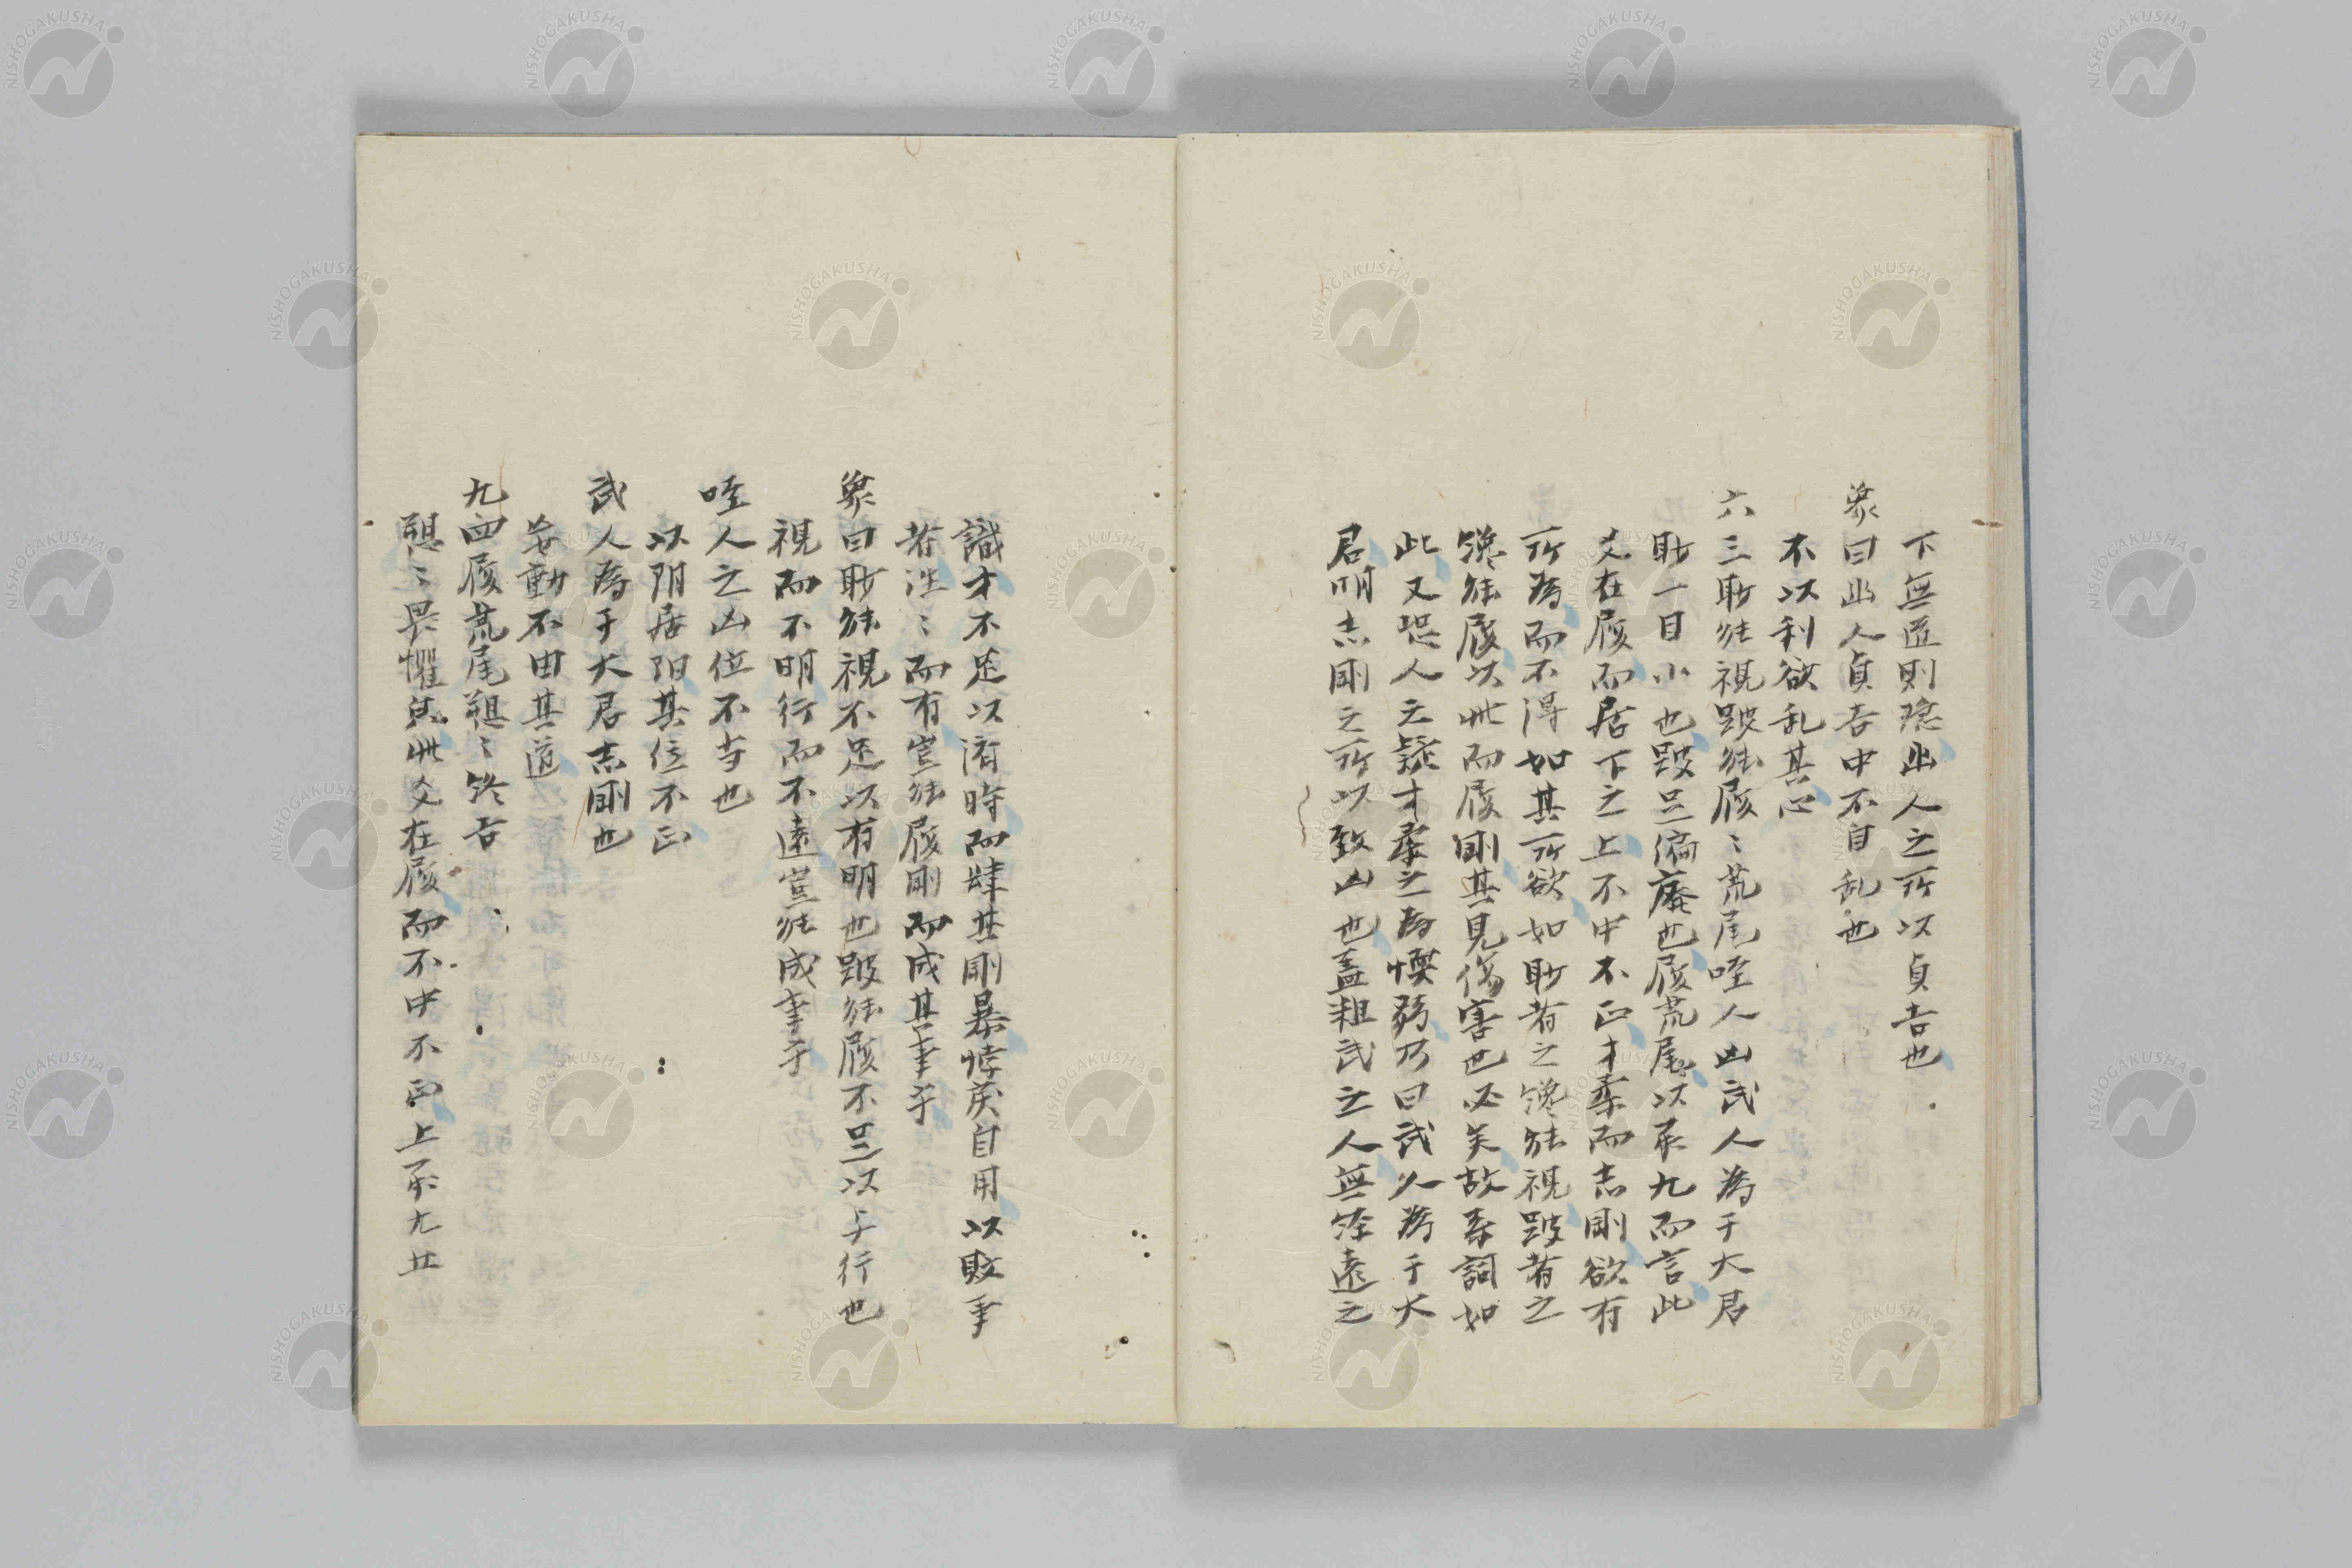 下無道則隠幽人之所以貞吉也
象曰幽人貞吉中不自乱也
不以利欲乱其心
六三眇能視跛能履〻虎尾咥人凶武人為于大君
眇一目小也跛足偏廃也履虎尾以承九而言此
爻在履而居下之上不中不正才柔而志剛欲有
所為而不得如其所欲如眇者之纔能視跛者之
纔能履以此而履剛其見傷害也必矣故系詞如
此又恐人之疑才柔之為愞弱乃曰武人為于大
君明志剛之所以致凶也蓋粗武之人無深遠之
識才不足以済時而肆其剛暴悻戻自用以敗事
者往〻而有豈能履剛而成其事乎
象曰眇能視不足以有明也跛能履不足以与行也
視而不明行而不遠豈能成事乎
咥人之凶位不当也
以阴居阳其位不正
武人為于大君志剛也
妄動不由其道
九四履虎尾愬〻終吉
愬〻畏懼皃此爻在履而不中不正上承九五